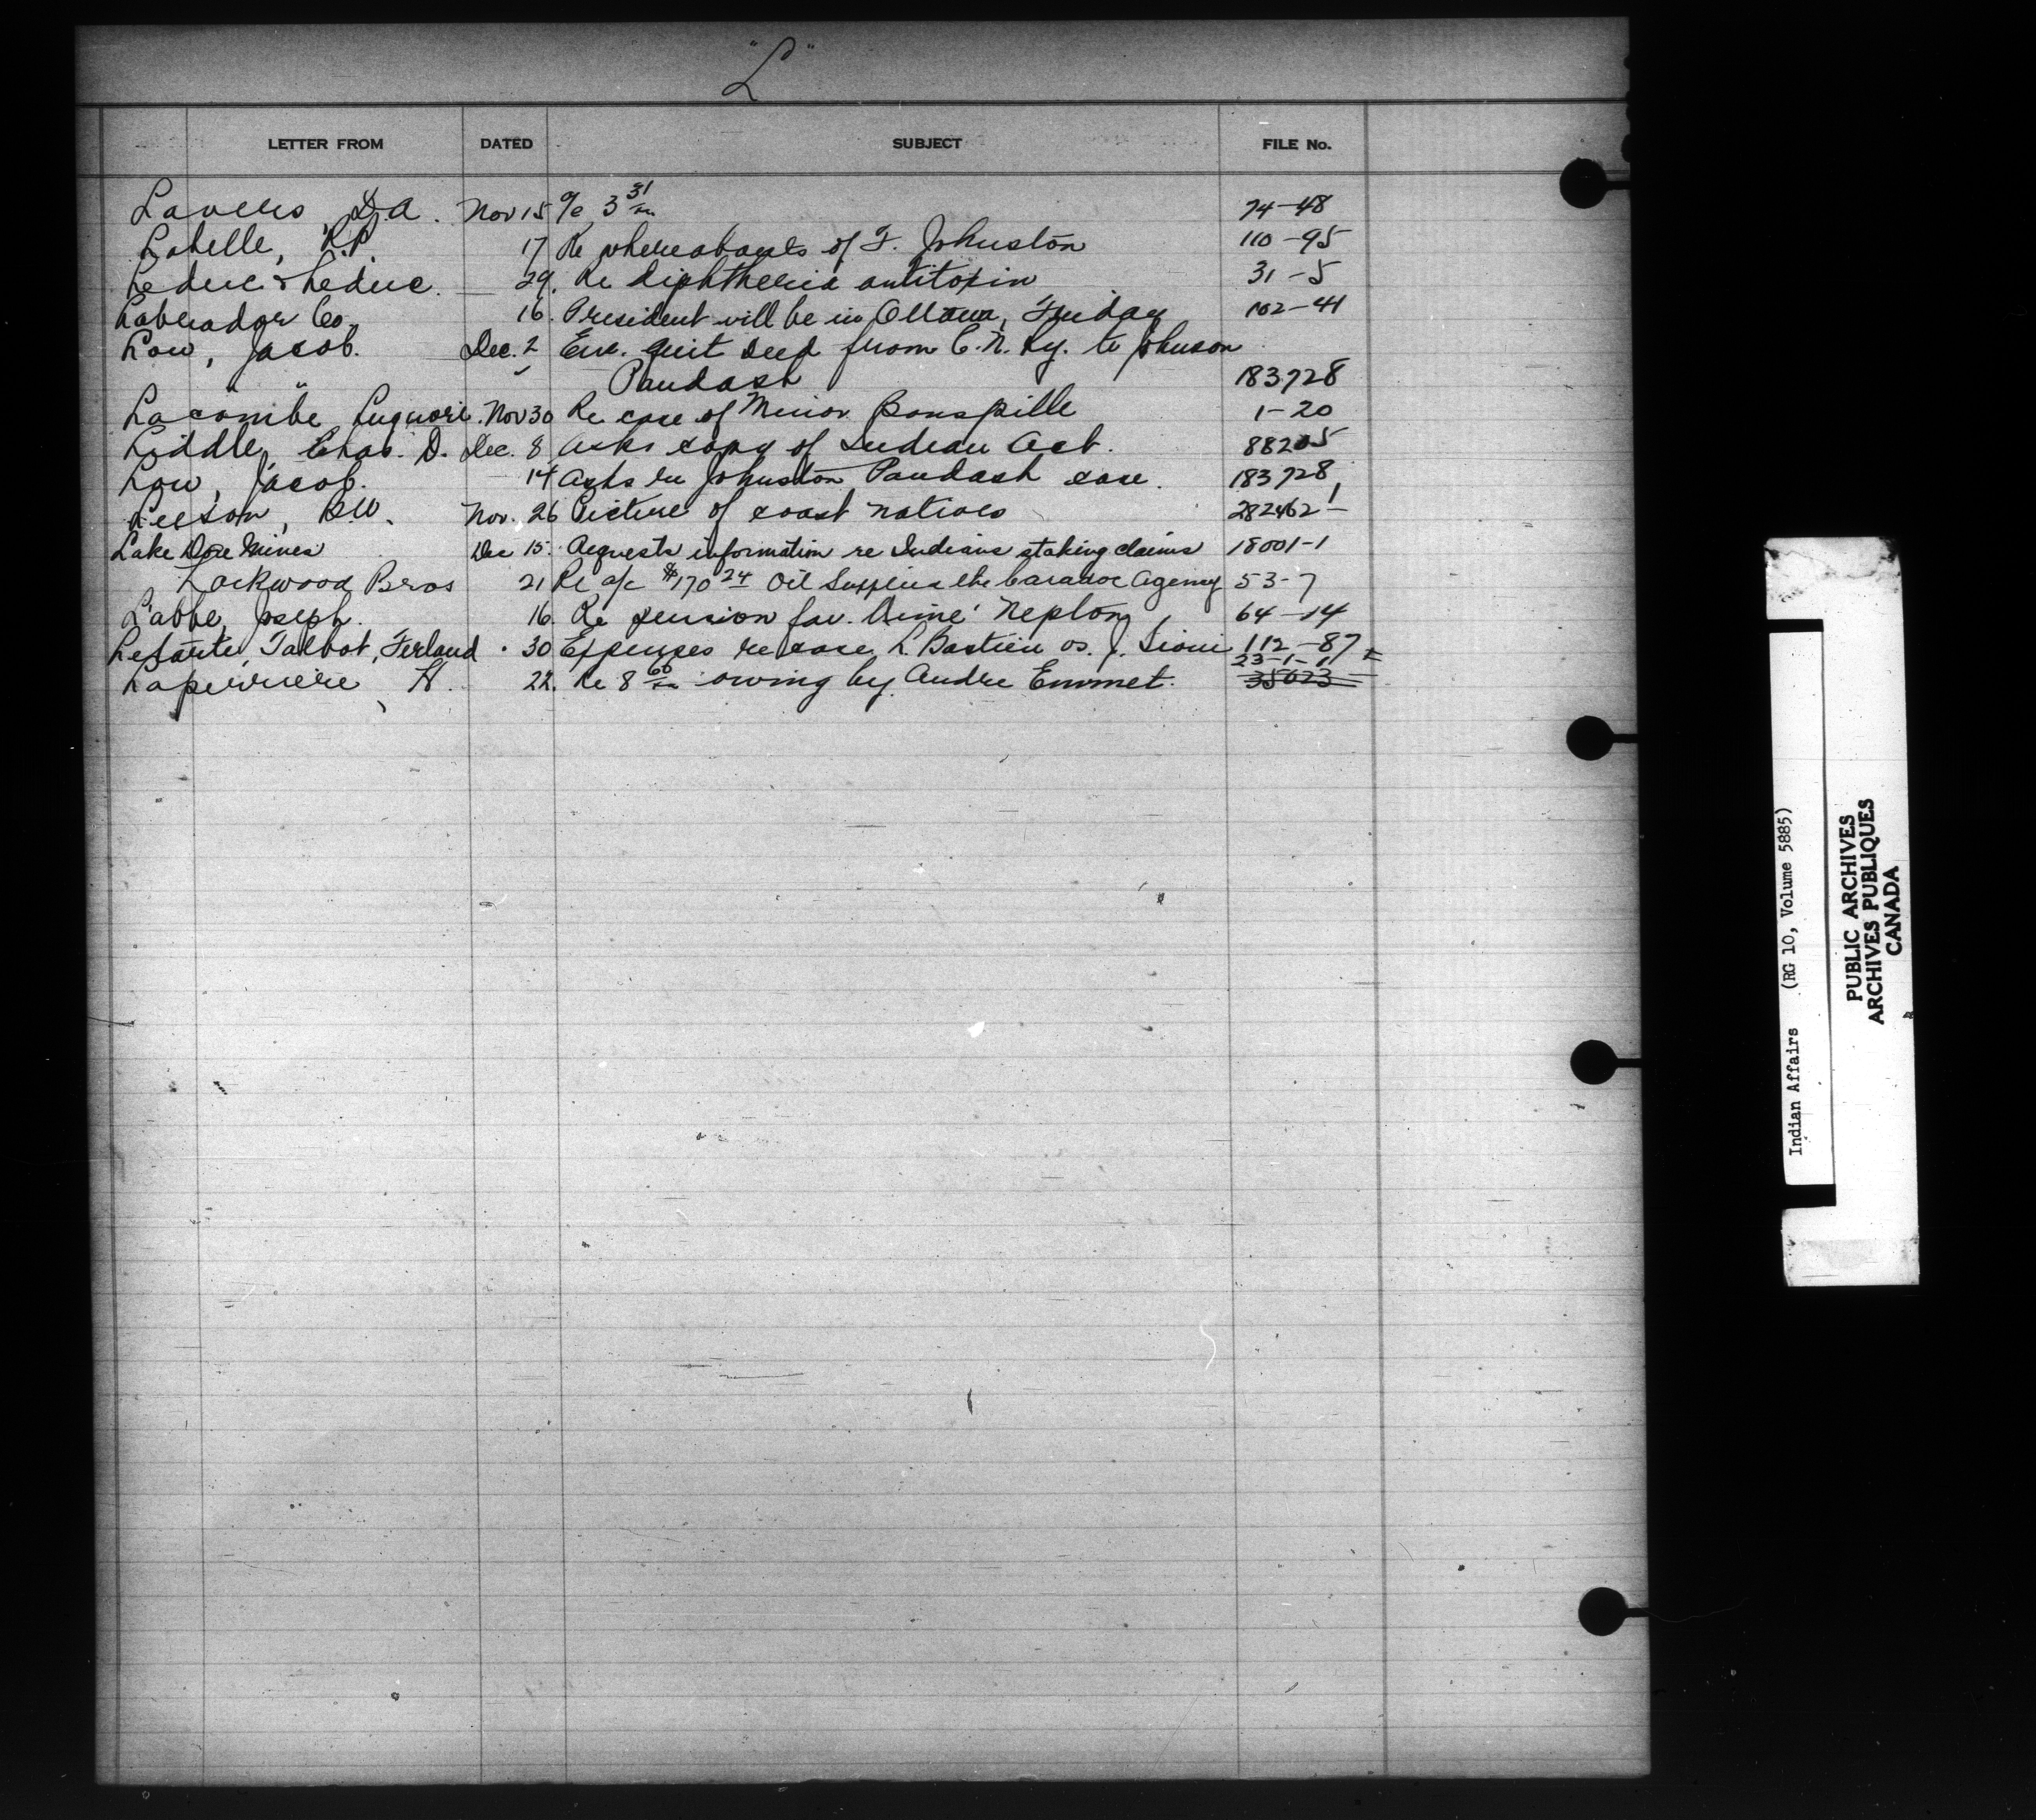 "L"
LETTER FROM DATED SUBJECT FILE No.
Lavers, D.A. Nov 15 a/c 3 31 74-48
Labelle, R.P. 17 Re whereabouts of F. Johnston 110-95
Leduc & Leduc. 29. Re diphtheria antitoxin 31-5
Labrador Co. 16. President will be in Ottawa, Friday 102-41
Low, Jacob. Dec. 2 Enc. quit deed from C.N. Ry. to Johnson
Paudash 183728
Lacombe Nov 30 Re case of Minor Bonspille 1-20
Liddle, Chas. D. Dec. 8 Asks copy of Indian Act. 88205
Low, Jacob. 14 Asks re Johnston Paudash case. 183728
Leeson, B.W. Nov. 26 Picture of coast natives 282462-1
Lake Dore Mines Dec 15. Requests information re Indians staking claims 18001-1
Lockwood Bros 21 Re a/c $170 24 Oil Supplies the Caradoc Agency 53-7
L'abbe, Joseph. 16. Re pension fav. Aimé Nepton 64-14
Lefaute, Talbot, Ferland 30 Expenses re case L. Bastien vs. J. Sioui 112-87
23-1-11
Laperriere, H. 22. Re 8 60 owing by Andre Emmet. 35023
Indian Affairs (RG 10, Volume 5885)
PUBLIC ARCHIVES
ARCHIVES PUBLIQUES
CANADA